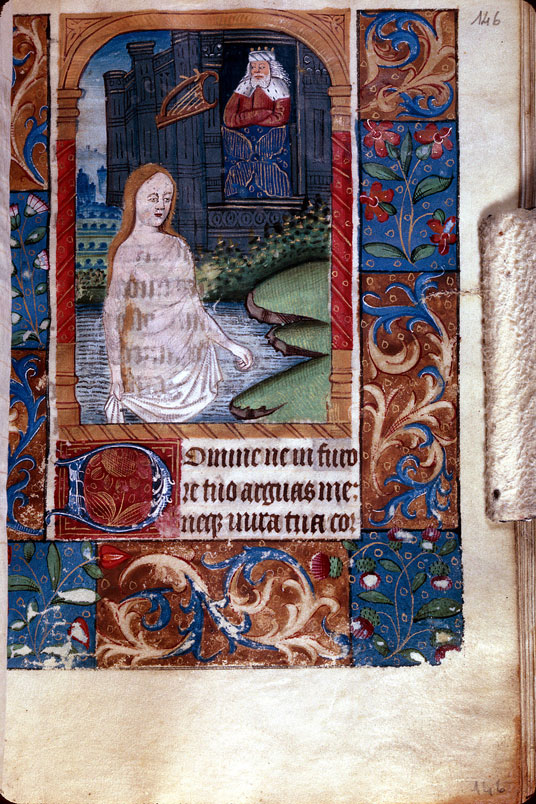 146
Domine ne in furo
re tuo arguas me:
neqȝ in ira tua cor
146